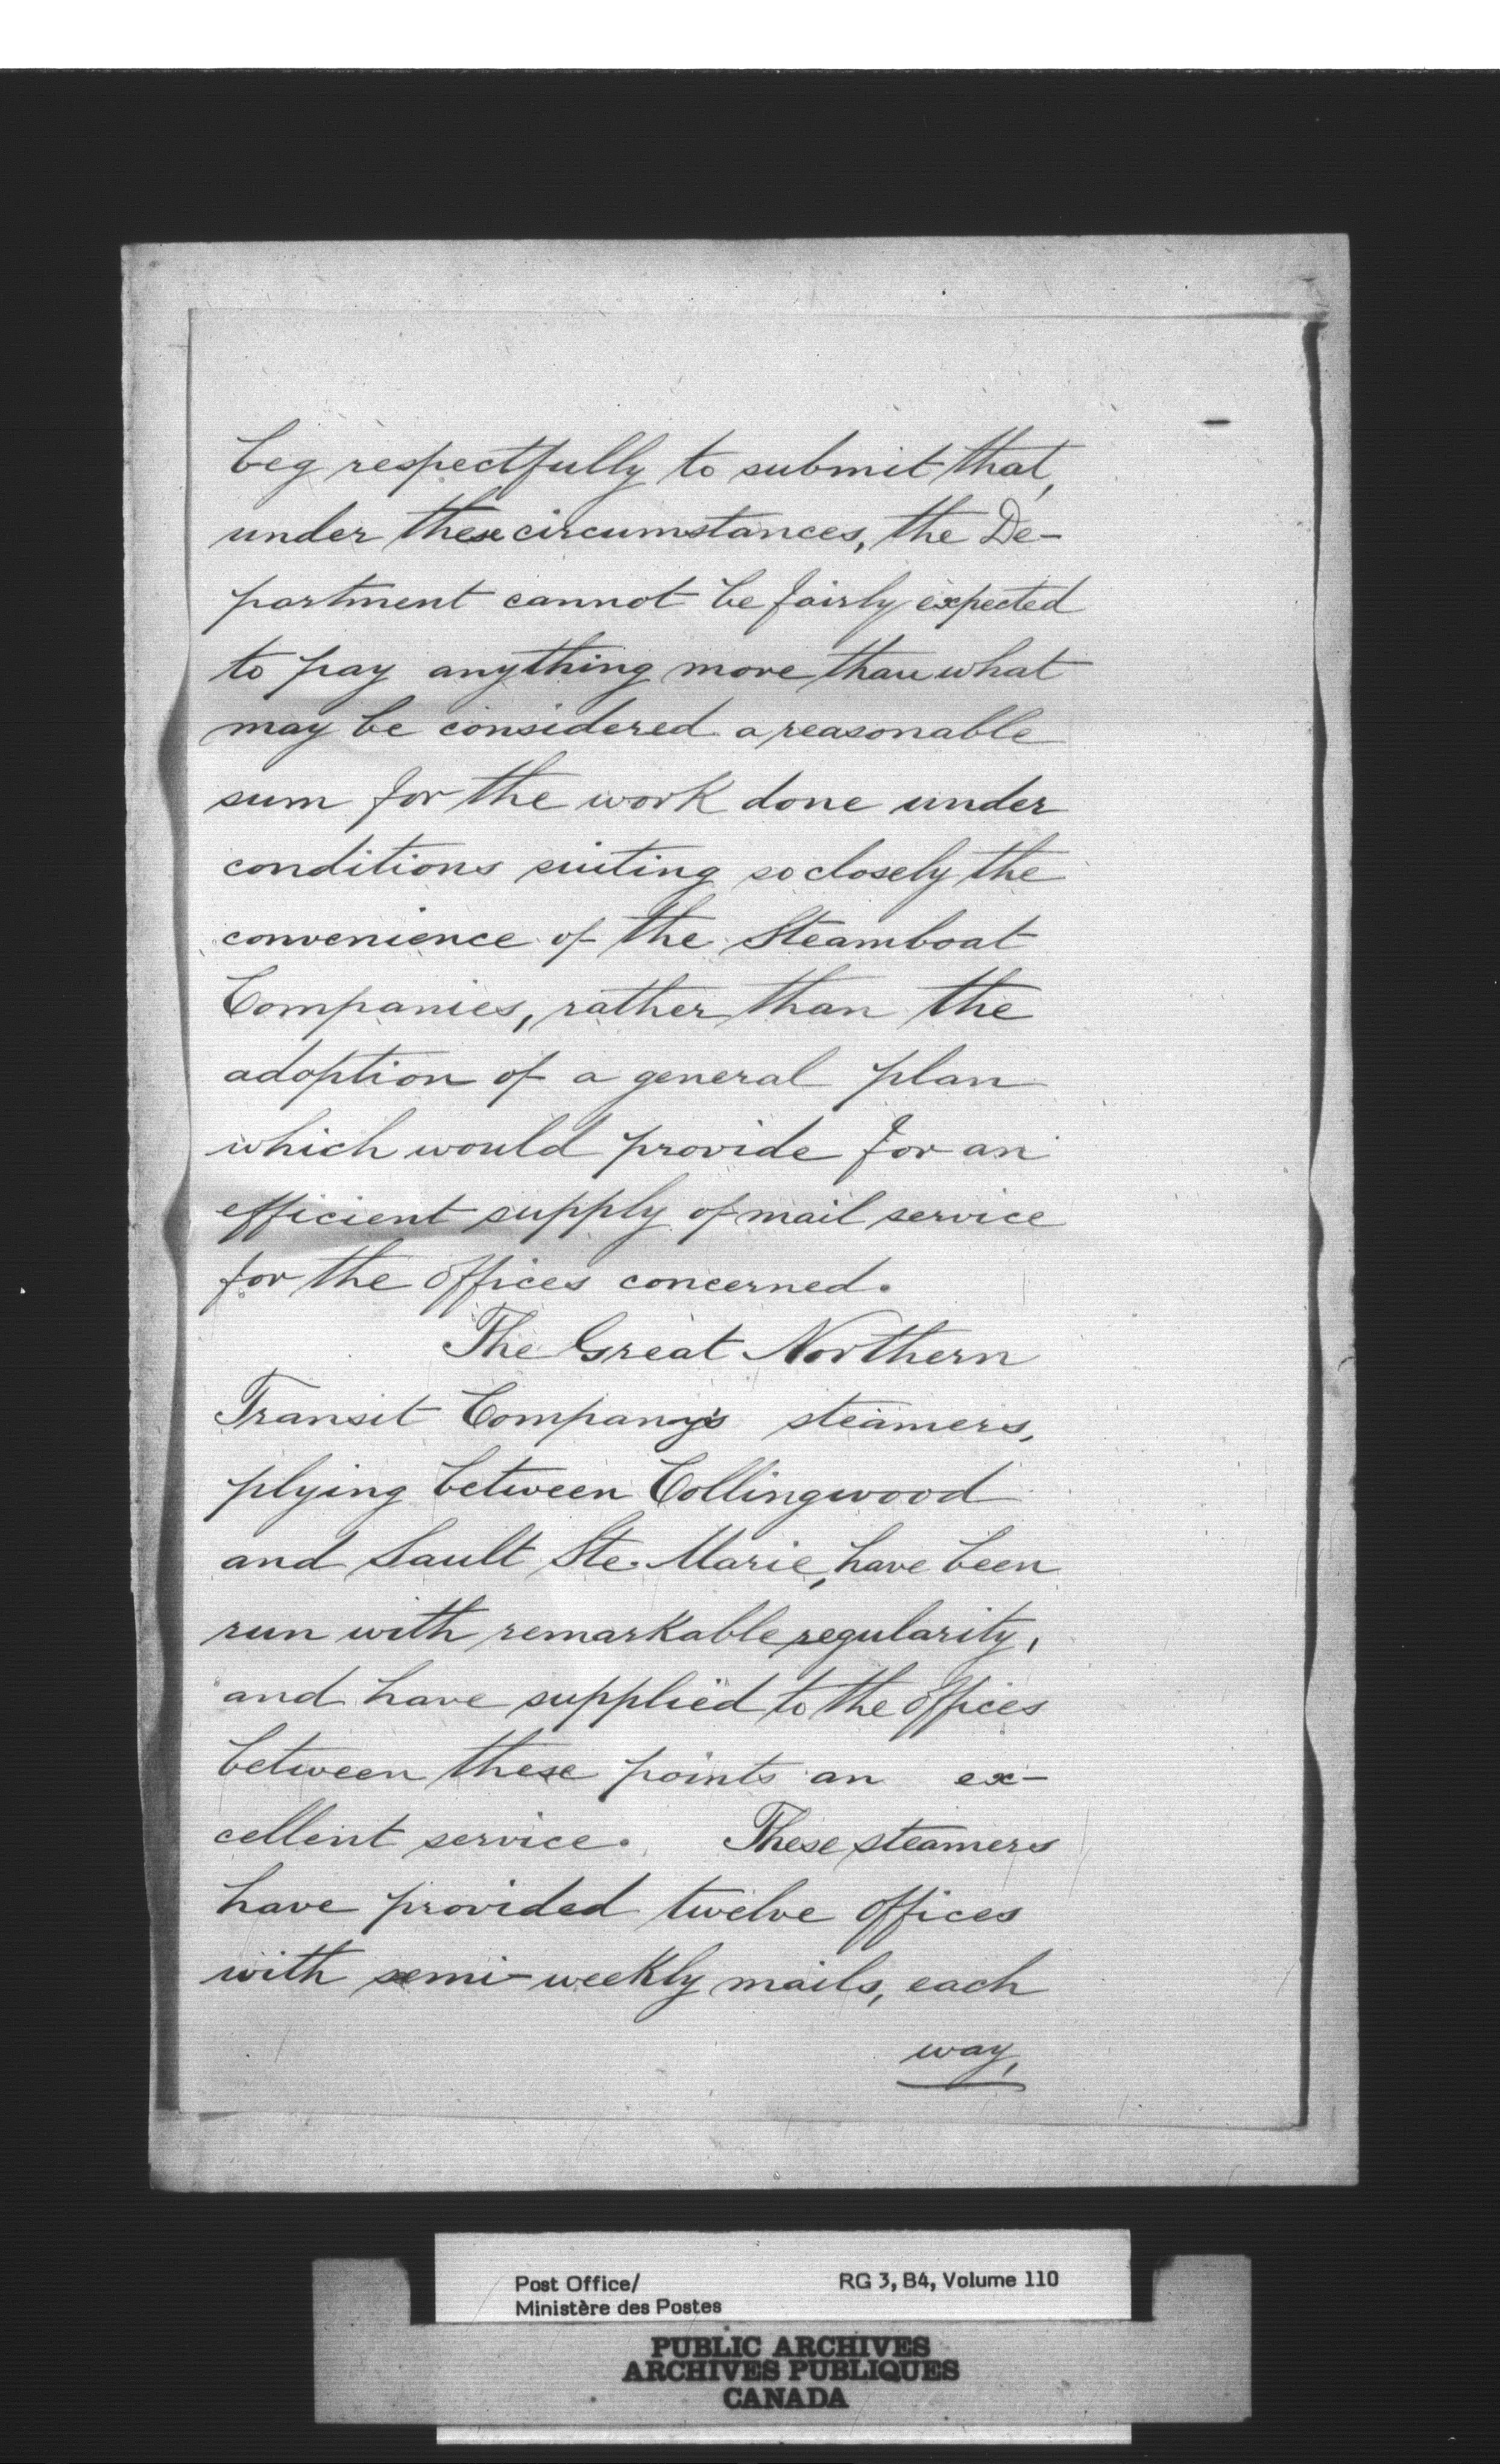 beg respectfully to submit that,
under these circumstances, the De-
partment cannot be fairly expected
to pay anything more than what
may be considered a reasonable
sum for the work done under
conditions suiting so closely the
convenience of the Steamboat
Companies, rather than the
adoption of a general plan
which would provide for an
efficient supply of mail service
for the offices concerned.
The Great Northern
Transit Company's steamers,
plying between Collingwood
and Sault Ste. Marie, have been
run with remarkable regularity,
and have supplied to the offices
between these points an ex-
cellent service. These steamers
have provided twelve offices
with semi-weekly mails, each
way,
Post Office/ RG 3, B4, Volume 110
Ministère des Postes
PUBLIC ARCHIVES
ARCHIVES PUBLIQUES
CANADA